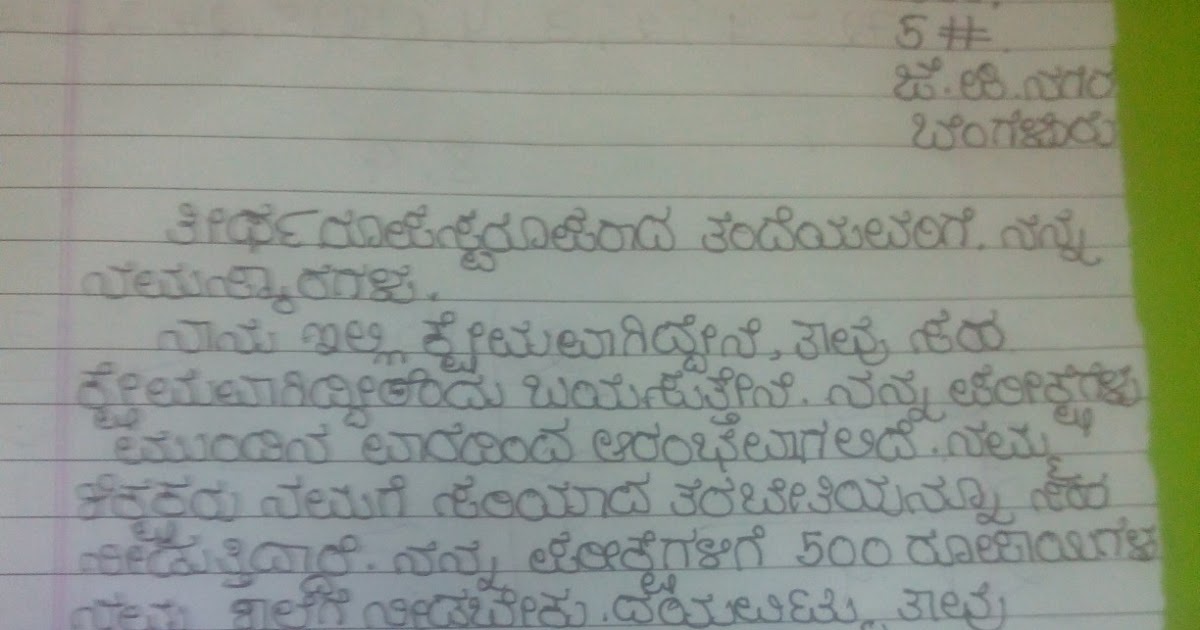 5 #
ಜೆ.ಪಿ.ನಗರ
ಬೆಂಗಳೂರು
ತೀರ್ಥ ರೂಪ ತಂದೆಯವರಿಗೆ. ನನ್ನ
ನಮಸ್ಕಾರಗಳು.
ನಾನು ಇಲ್ಲಿ ಕ್ಷೇಮವಾಗಿದ್ದೇನೆ, ತಾವು ಸಹ
ಕ್ಷೇಮವಾಗಿದ್ದೀರೆಂದು ಬಯಸುತೇನೆ. ನನ್ನ ಪರೀಕ್ಷೆಗಳು
ಮುಂದಿನ ವಾರದಿಂದ ಆರಂಭವಾಗಲಿದೆ. ನಮ್ಮ
ಶಿಕ್ಷಕರು ನಮಗೆ ಸರಿಯಾದ ತರಬೇತಿಯನ್ನು ಸಹ
ನೀಡುತ್ತಿದಾರೆ. ನನ್ನ ಪರೀಕ್ಷೆಗಳಿಗೆ 500 ರೂಪಾಯಿಗಳ
ನಮ್ಮ ಶಾಲೆಗೆ ನೀಡಬೇಕು. ದಯವಿಟ್ಟು ತಾವು